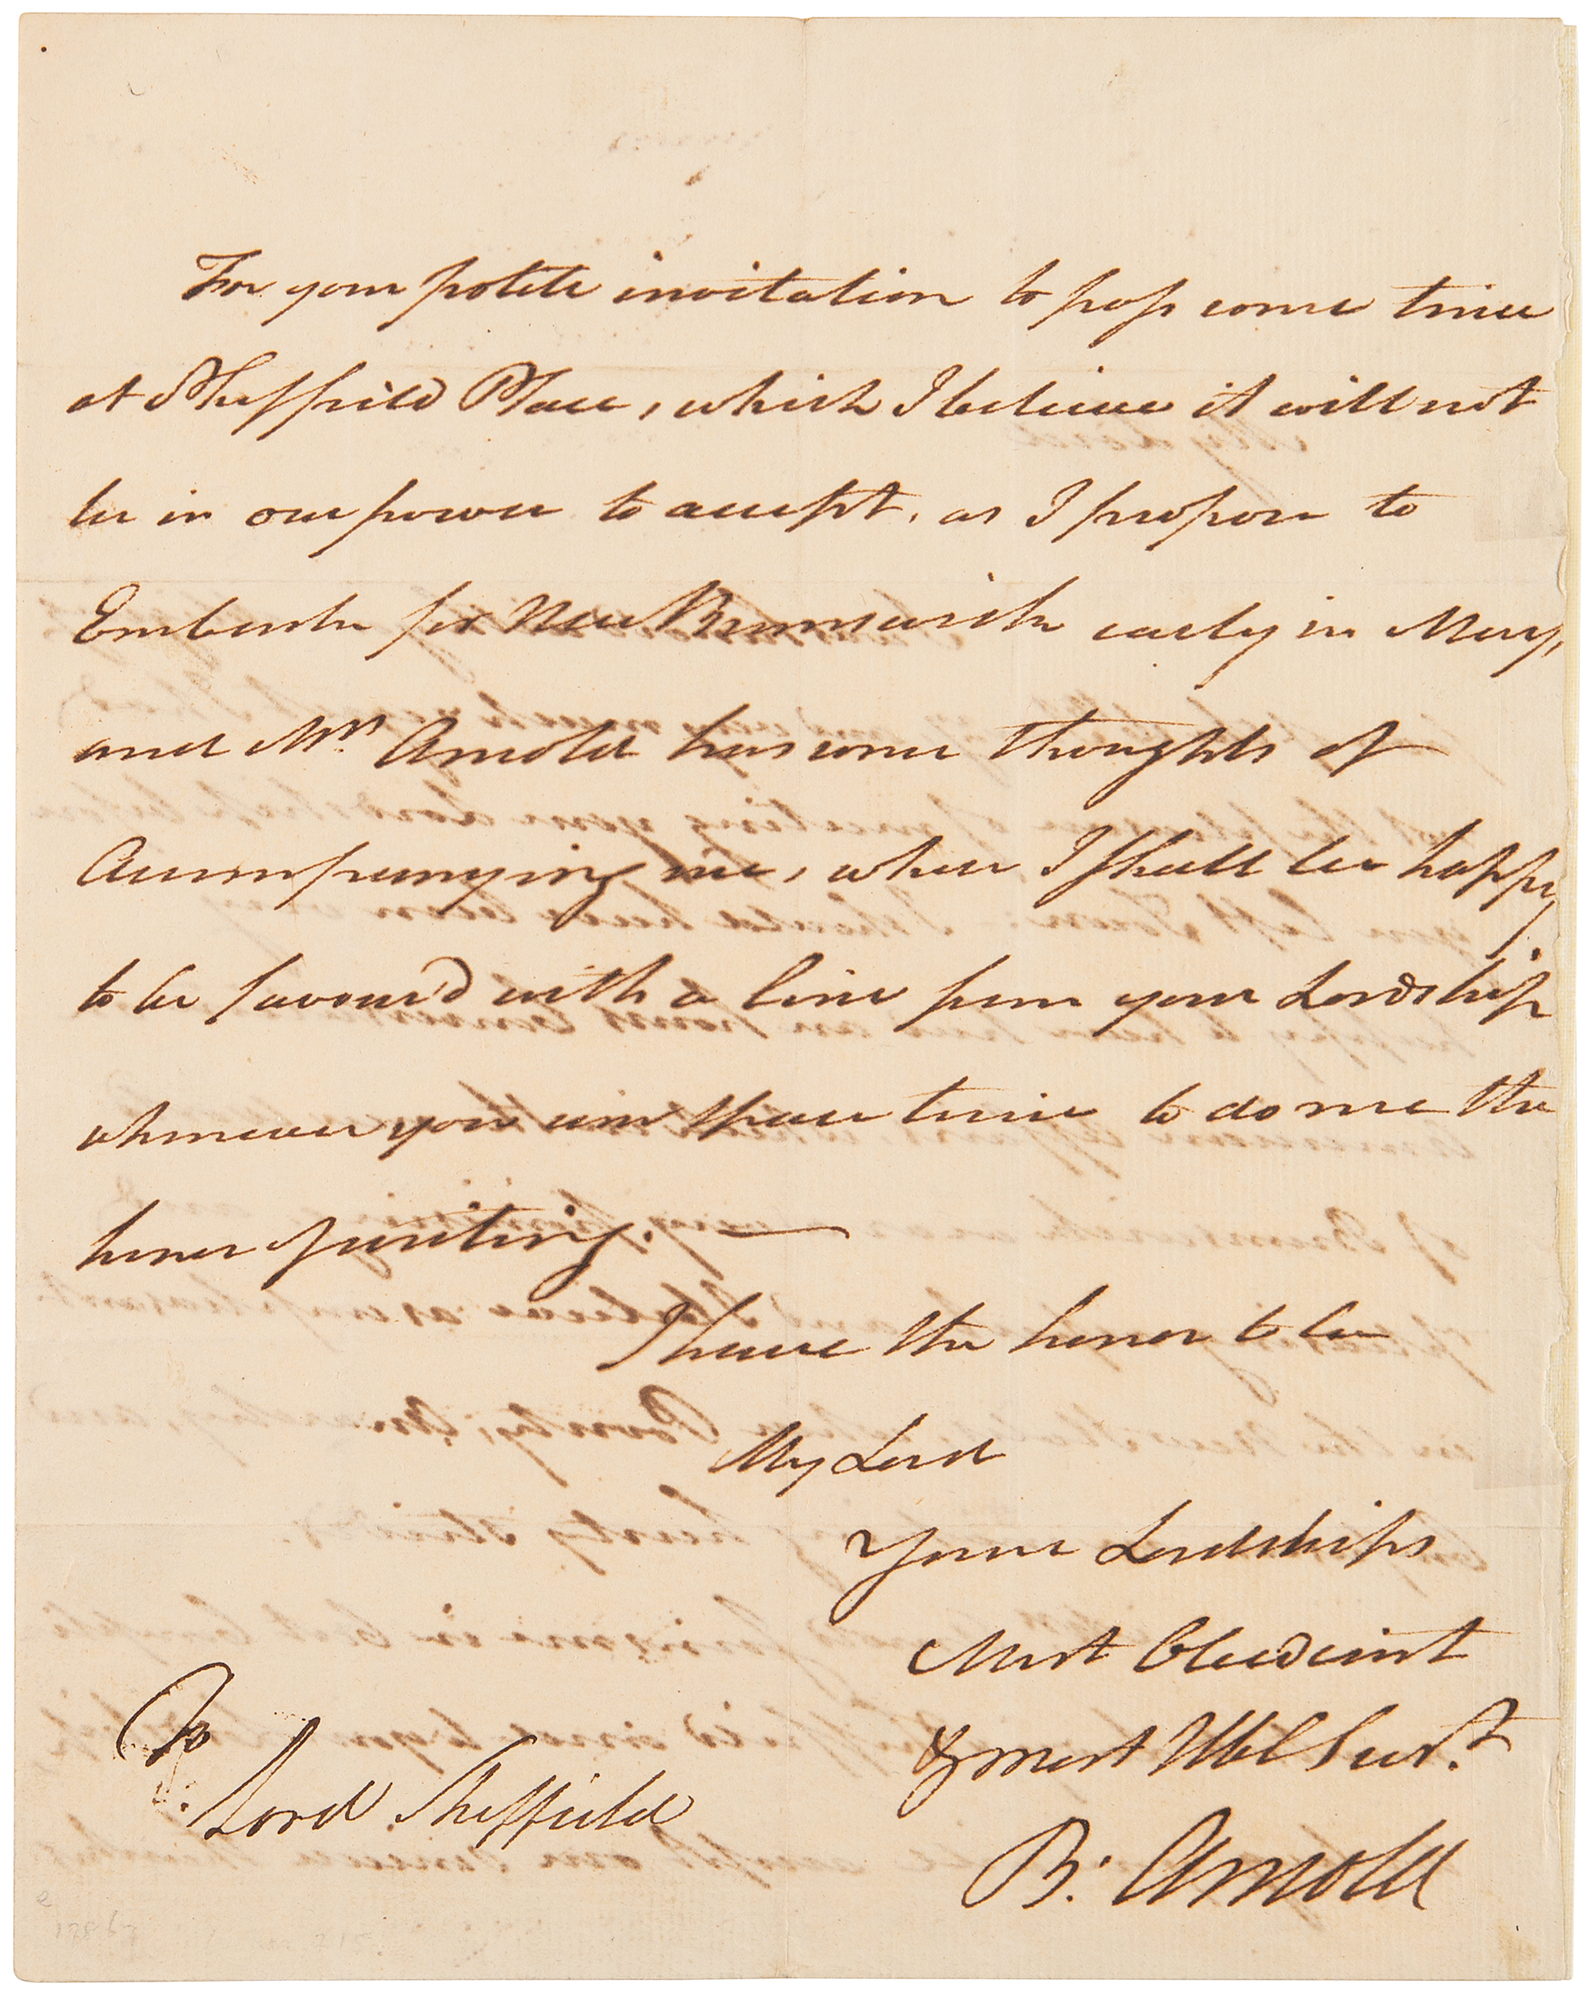 For your polite invitation to pass some time
at Sheffield Place, which I believe it will not
be in our power to accept, as I propose to
Embark for New Brunswick early in May,
and Mrs Arnold has some thoughts of
Accompanying me, where I shall be happy
to be favour'd with a line from your Lordship
whenever you can spare time to do me the
honor of writing. —
I have the honor to be
My Lord
Your Lordships
Most Obedient
& most Hble Servt
B: Arnold
To
Lord Sheffield